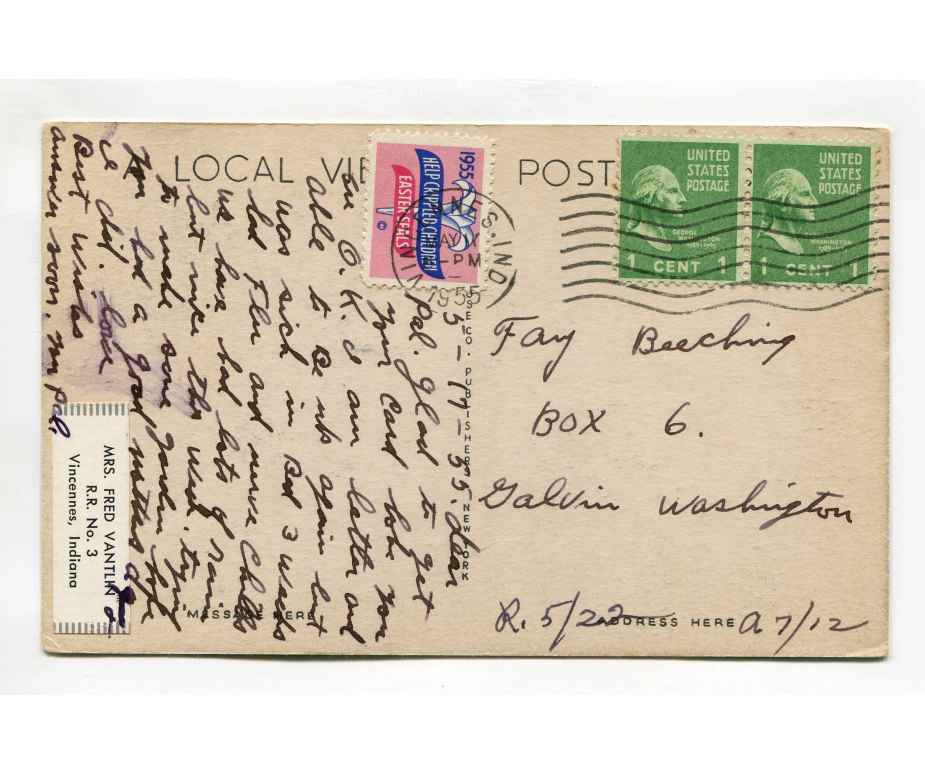 LOCAL VIE
POST
1955
HELP CRIPPLED CHILDREN
EASTER SEALS
©
UNITED
STATES
POSTAGE
1 CENT 1
UNITED
STATES
POSTAGE
1 CENT 1
NES. IND
PM
1955
PUBLISHERS NEW YORK
5-17-55. Dear
pal. glad to get
your card hope you
are O.K. I am better and
able to Be up again but
was sick in Bed 3 weeks
had Flu and nerve Chills
we have had lots of rain
but nice this week. trying
to make some garden hope
you had a good mothers day
I did. love
Best wishes
answer soon. my pal.
MRS. FRED VANTLIN
R.R. No. 3
Vincennes, Indiana
MESSAGE HERE
Fay Beeching
BOX 6.
Galvin Washington
R. 5/22
ADDRESS HERE
A 7/12